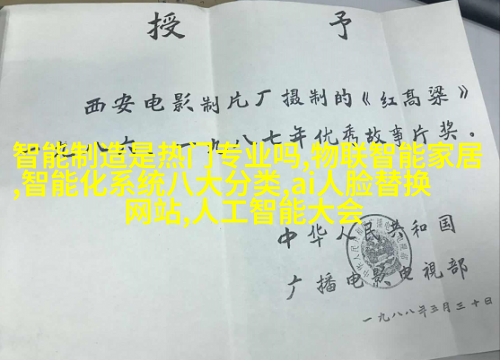 授予
西安电影制片厂摄制的《红高粱》
一九八七年优秀故事片奖。
智能制造是热门专业吗,物联智能家居
,智能化系统八大分类,ai人脸替换
网站,人工智能大会
中华人民共和国
广播电影电视部
一九八八年三月三十日